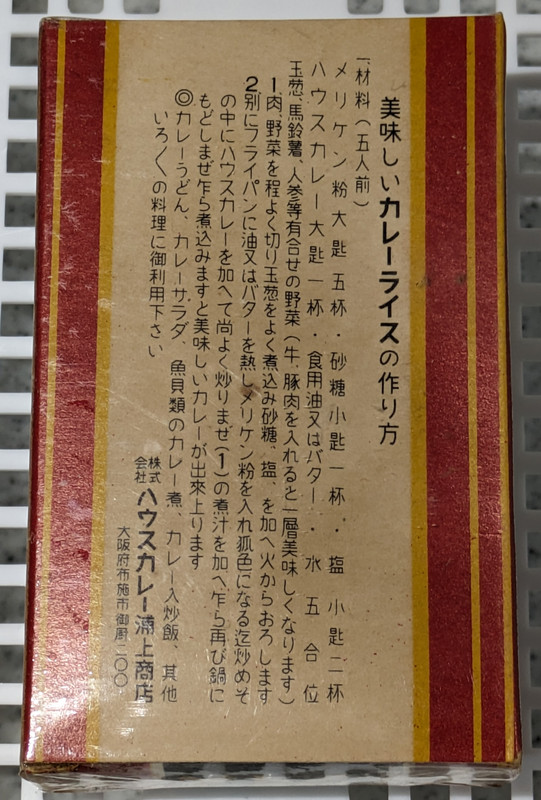 美味しいカレーライスの作り方
一、材料（五人前）
メリケン粉大匙五杯・砂糖小匙一杯・塩小匙二杯
ハウスカレー大匙一杯・食用油又はバター・水五合位
玉葱、馬鈴薯、人参等有合せの野菜（牛、豚肉を入れると一層美味しくなります）
1.肉、野菜を程よく切り玉葱をよく煮込み砂糖、塩、を加へ火からおろします
2.別にフライパンに油又はバターを熱しメリケン粉を入れ狐色になる迄炒めそ
の中にハウスカレーを加へて尚よく炒りませ(1)の煮汁を加へ乍ら再び鍋に
もどしまぜ乍ら煮込みますと美味しいカレーが出來上ります
◎カレーうどん、カレーサラダ、魚貝類のカレー煮、カレー入炒飯、其他
いろ〱の料理に御利用下さい
株式会社ハウスカレー浦上商店
大阪府布施市御厨二〇〇